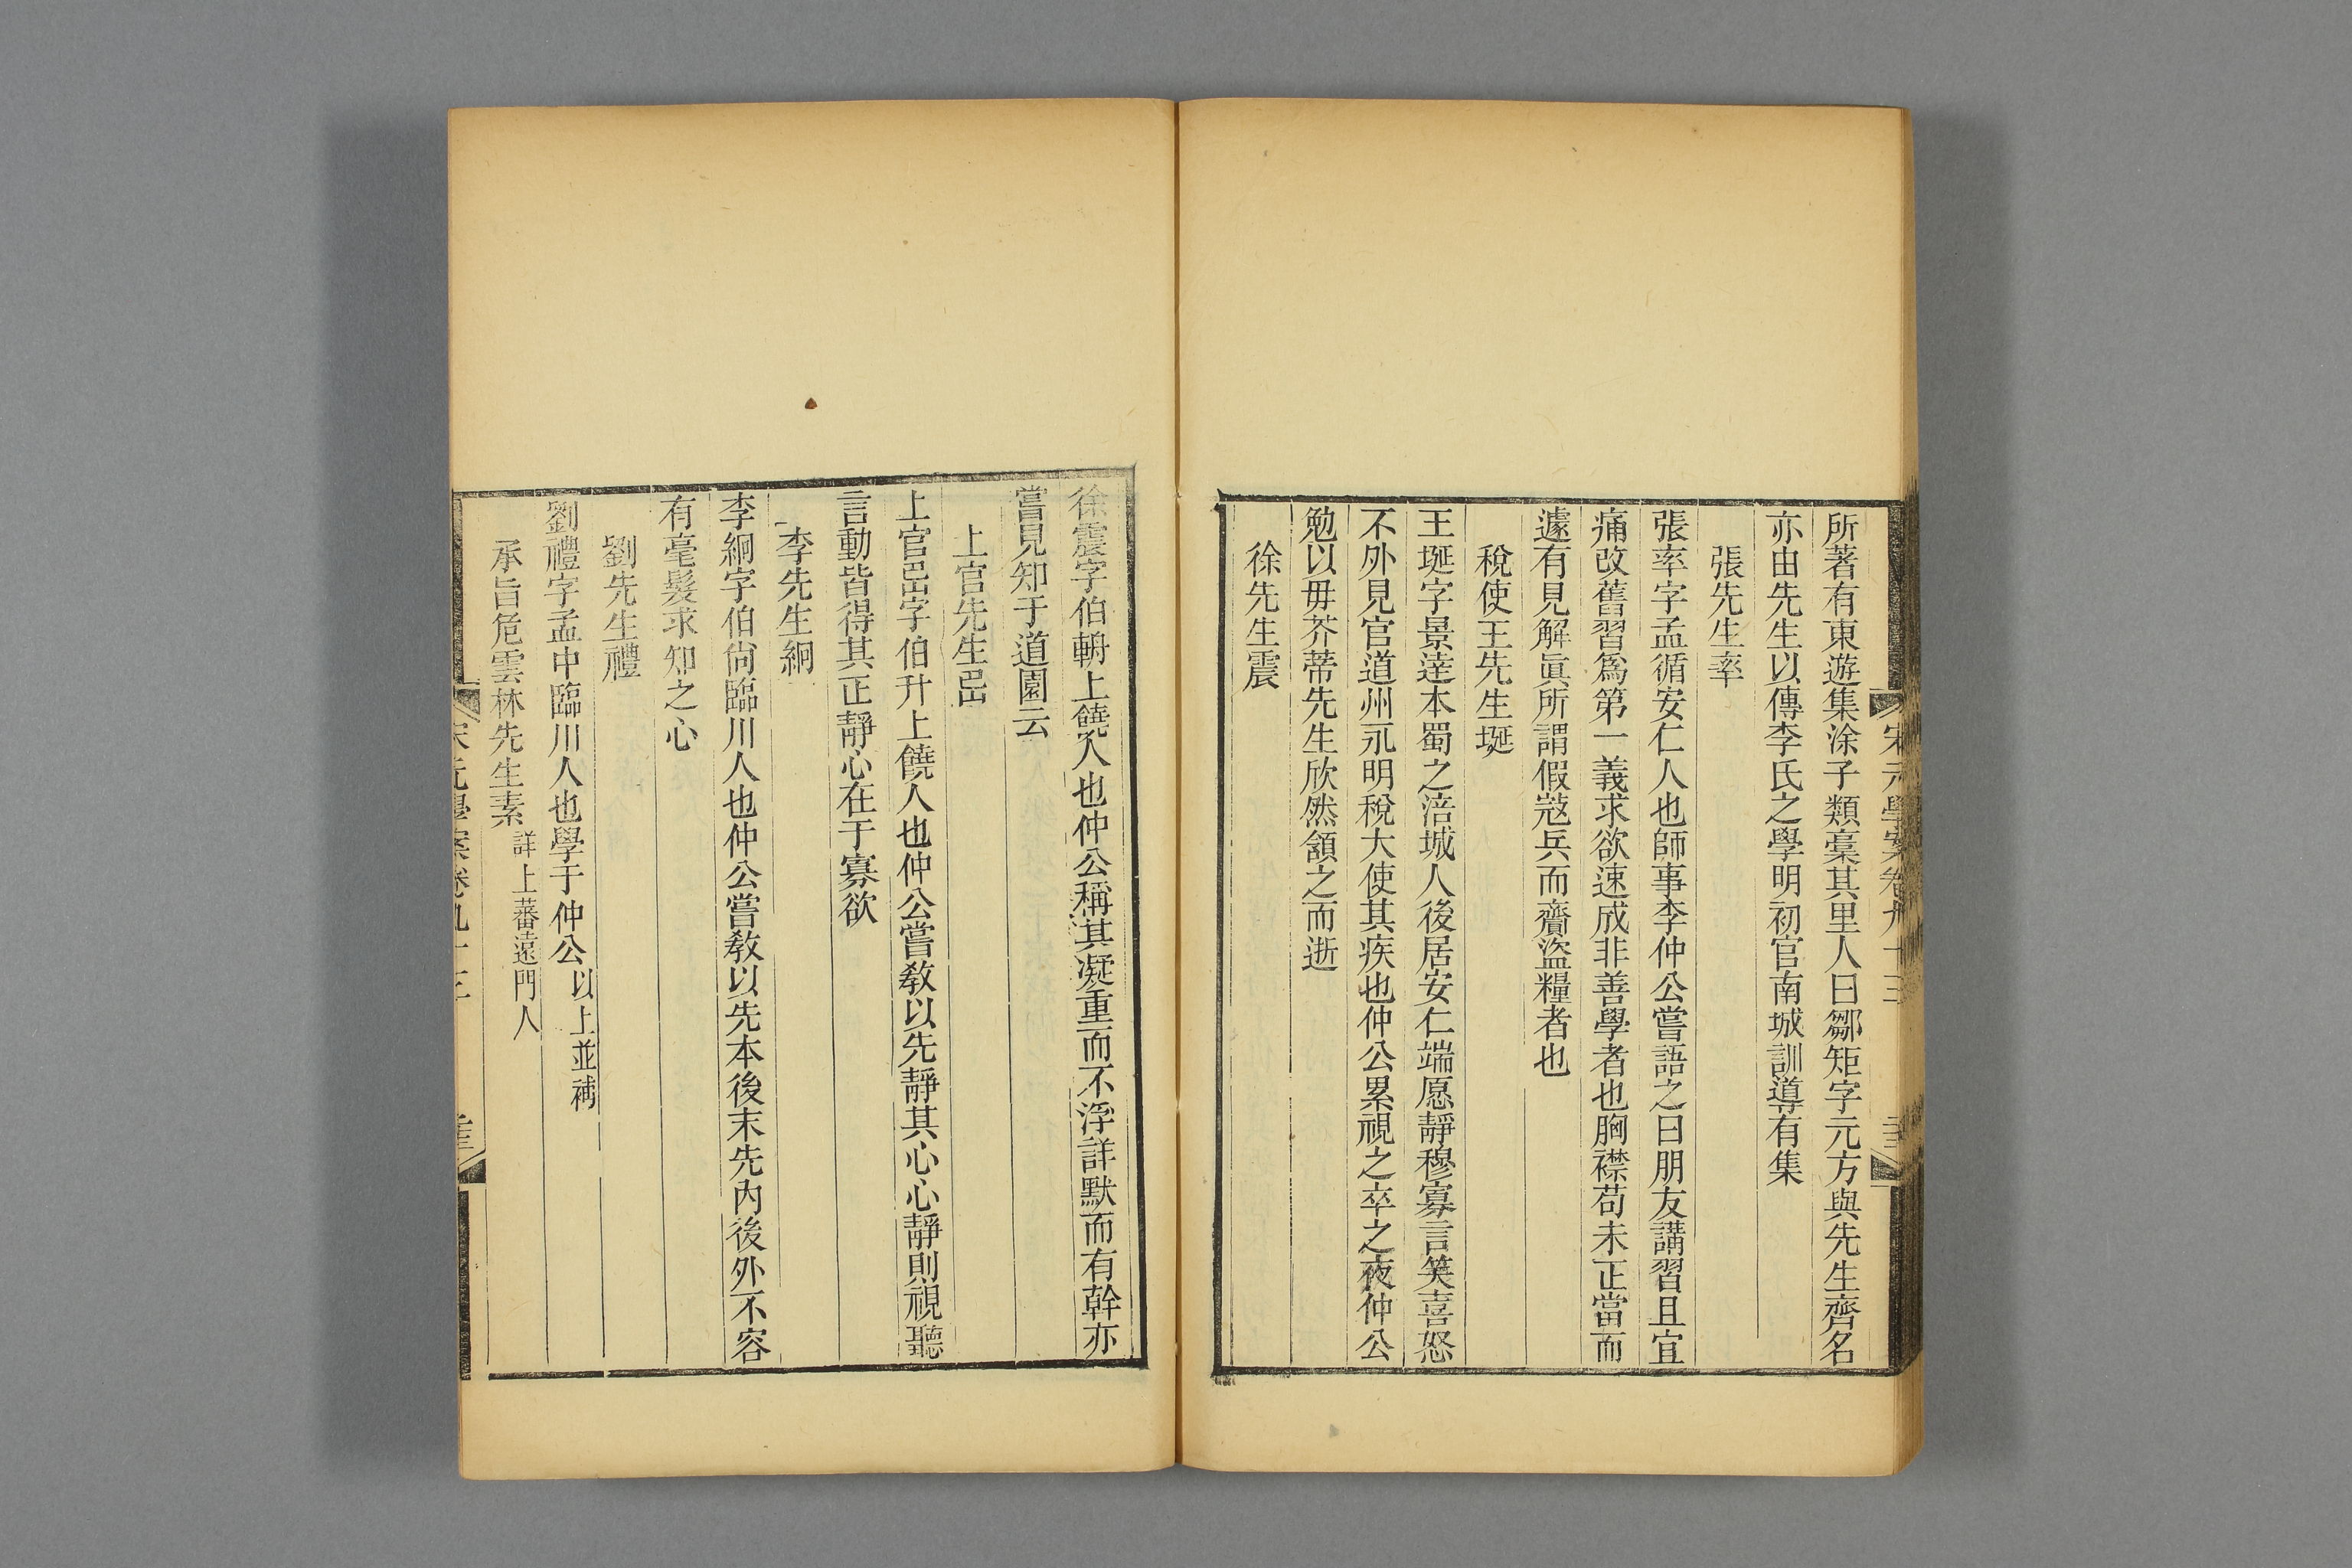 宋元學案卷九十三
所著有東遊集涂子類稾其里人曰鄒矩字元方與先生齊名
亦由先生以傳李氏之學明初官南城訓導有集
張先生率
張率字孟循安仁人也師事李仲公嘗語之曰朋友講習且宜
痛改舊習爲第一義求欲速成非善學者也胸襟苟未正當而
遽有見解眞所謂假𡨥兵而齎盜糧者也
稅使王先生埏
王埏字景逹本蜀之涪城人後居安仁端愿靜穆寡言笑喜怒
不外見官道州永明稅大使其疾也仲公累視之卒之夜仲公
勉以毋芥蒂先生欣然頷之而逝
徐先生震
徐震字伯輈上饒人也仲公稱其凝重而不浮詳默而有幹亦
嘗見知于道園云
上官先生岊
上官岊字伯升上饒人也仲公嘗敎以先靜其心心靜則視聽
言動皆得其正靜心在于寡欲
李先生絅
李絅字伯尙臨川人也仲公嘗敎以先本後末先內後外不容
有毫髮求知之心
劉先生禮
劉禮字孟中臨川人也學于仲公以上並補
承旨危雲林先生素詳上蕃遠門人
宋元學案卷九十三